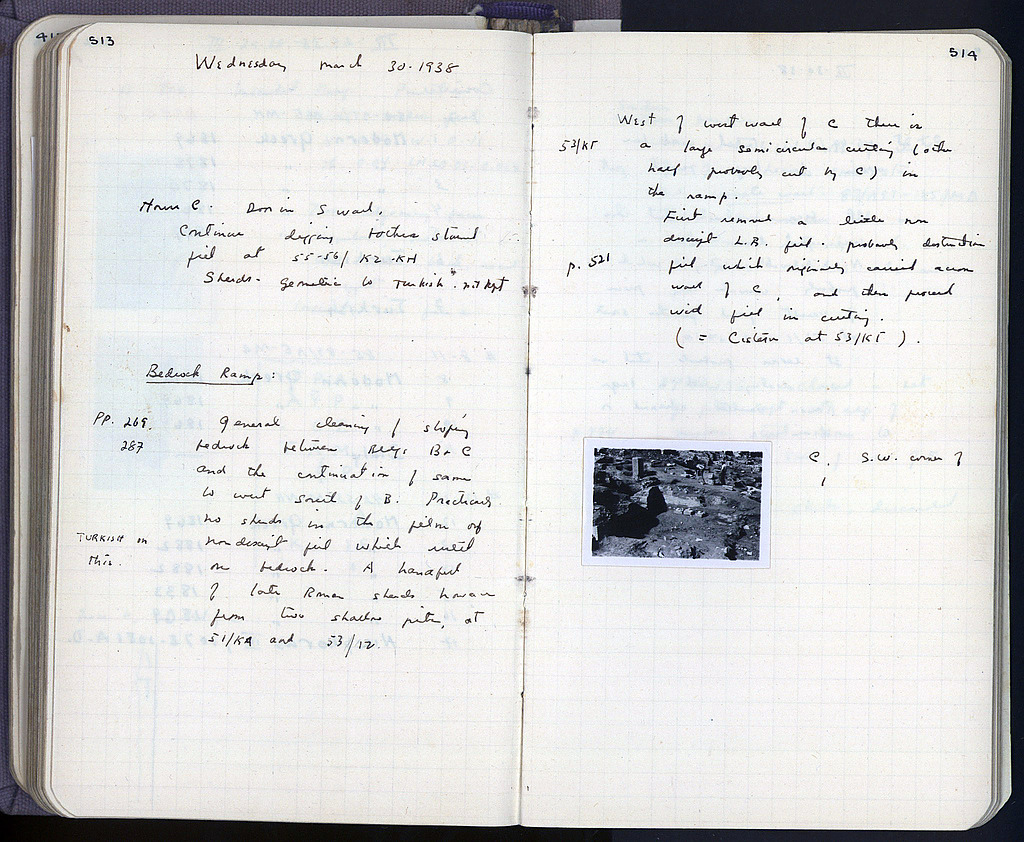 513
Wednesday March 30-1938
House C. Door in S wall.
Continue digging rather sterile
fill at 55-56/KZ-KH
Sherds - geometric to Turkish. not kept
Bedrock Ramp:
PP. 269, general cleaning of sloping
287 bedrock between Bldgs B & C
and the continuation of same
to west south of B. Practically
no sherds in the film of
TURKISH in nondescript fill which
this. on bedrock. A handful
of late Roman sherds however
from two shallow pits, at
51/KA and 53/12.
514
West of west wall of C there is
53/KF a large semicircular cutting (other
half probably cut by C) in
the ramp.
First removed a little non
descript L.R. fill - probably destruction
p. 521 fill which originally carried across
wall of C, and then proceed
with fill in cutting.
( = Cistern at 53/KF ).
C, S.W. corner of